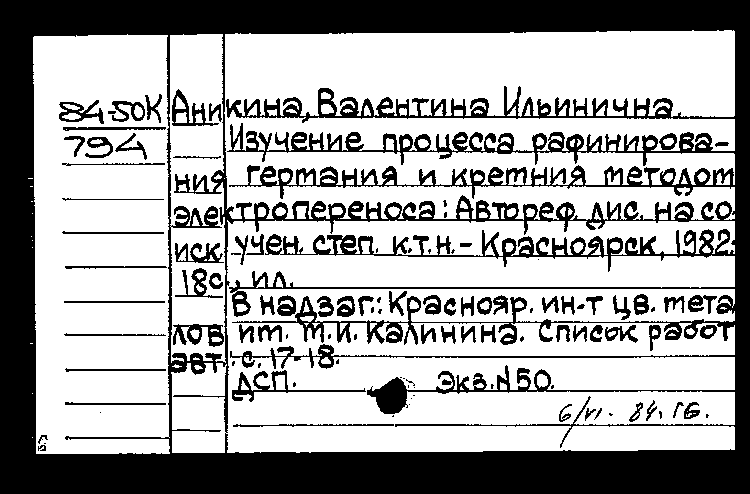 84-50К Аникина, Валентина Ильинична.
794 Изучение процесса рафинирова-
ния германия и кремния методом
электропереноса: Автореф. дис. на со-
иск. учен. степ. к.т.н. - Красноярск, 1982.
18с., ил.
В надзаг.: Краснояр. ин-т цв. метал
лов им. М.И. Калинина. Список работ
авт.: с. 17-18.
ДСП. Экз. №50.
6/VI. 84. ГБ.